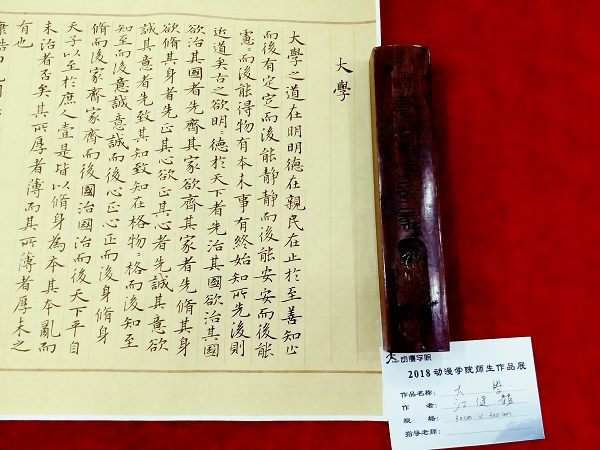 大學
大學之道在明明德在親民在止於至善知止
而後有定定而後能靜靜而後能安安而後能
慮〻而後能得物有本末事有終始知所先後則
近道矣古之欲明〻德於天下者先治其國
欲治其國者先齊其家欲齊其家者先脩其身
欲脩其身者先正其心欲正其心者先誠其意欲
誠其意者先致其知致知在格物〻格而後知至
知至而後意誠意誠而後心正心正而後身脩身
脩而後家齊家齊而後國治國治而後天下平自
天子以至於庶人壹是皆以脩身為本其本亂而
末治者否矣其所厚者薄而其所薄者厚未之
有也
康誥曰克
动漫学院
2018动漫学院师生作品展
作品名称: 大學
作者: 江
规格: 50cm×300cm
指导老师: